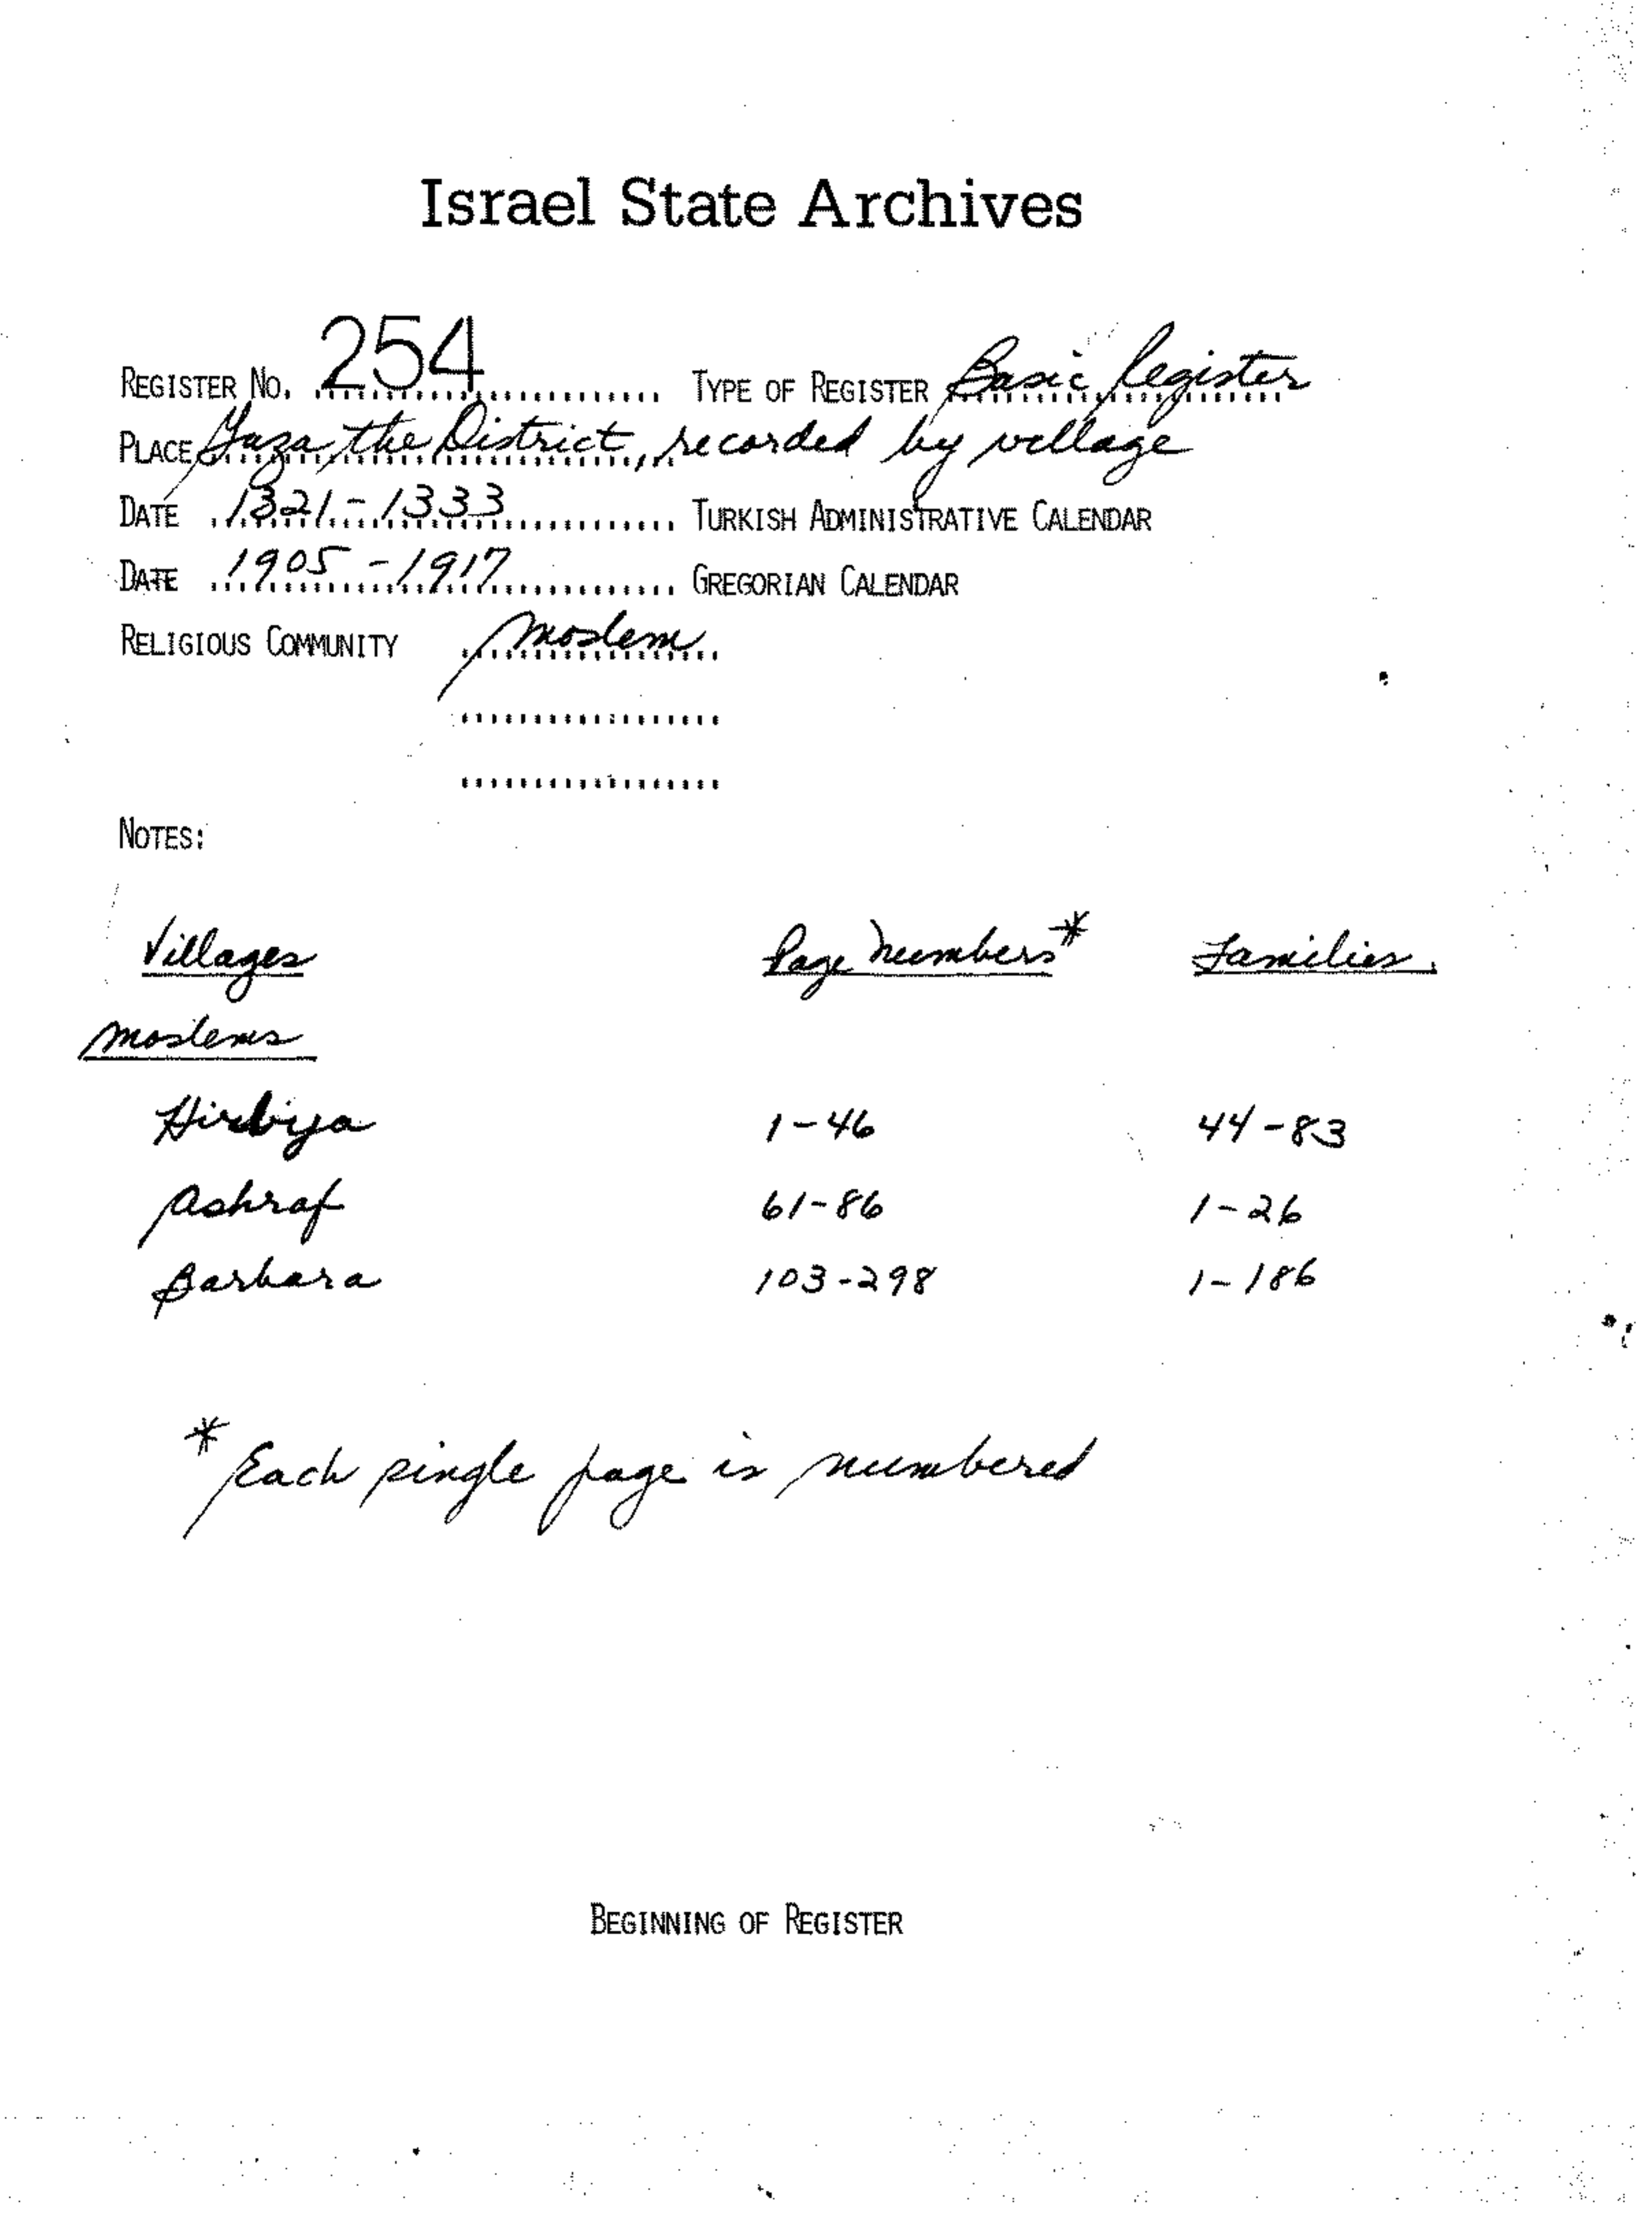 Israel State Archives
REGISTER NO. 254 TYPE OF REGISTER Basic Register
PLACE Gaza, the District, recorded by village
DATE 1321-1333 TURKISH ADMINISTRATIVE CALENDAR
DATE 1905-1917 GREGORIAN CALENDAR
RELIGIOUS COMMUNITY Moslem
NOTES:
Villages Page Numbers* Families
Moslems
Hirbiya 1-46 44-83
Ashraf 61-86 1-26
Barbara 103-298 1-186
* Each single page is numbered
BEGINNING OF REGISTER